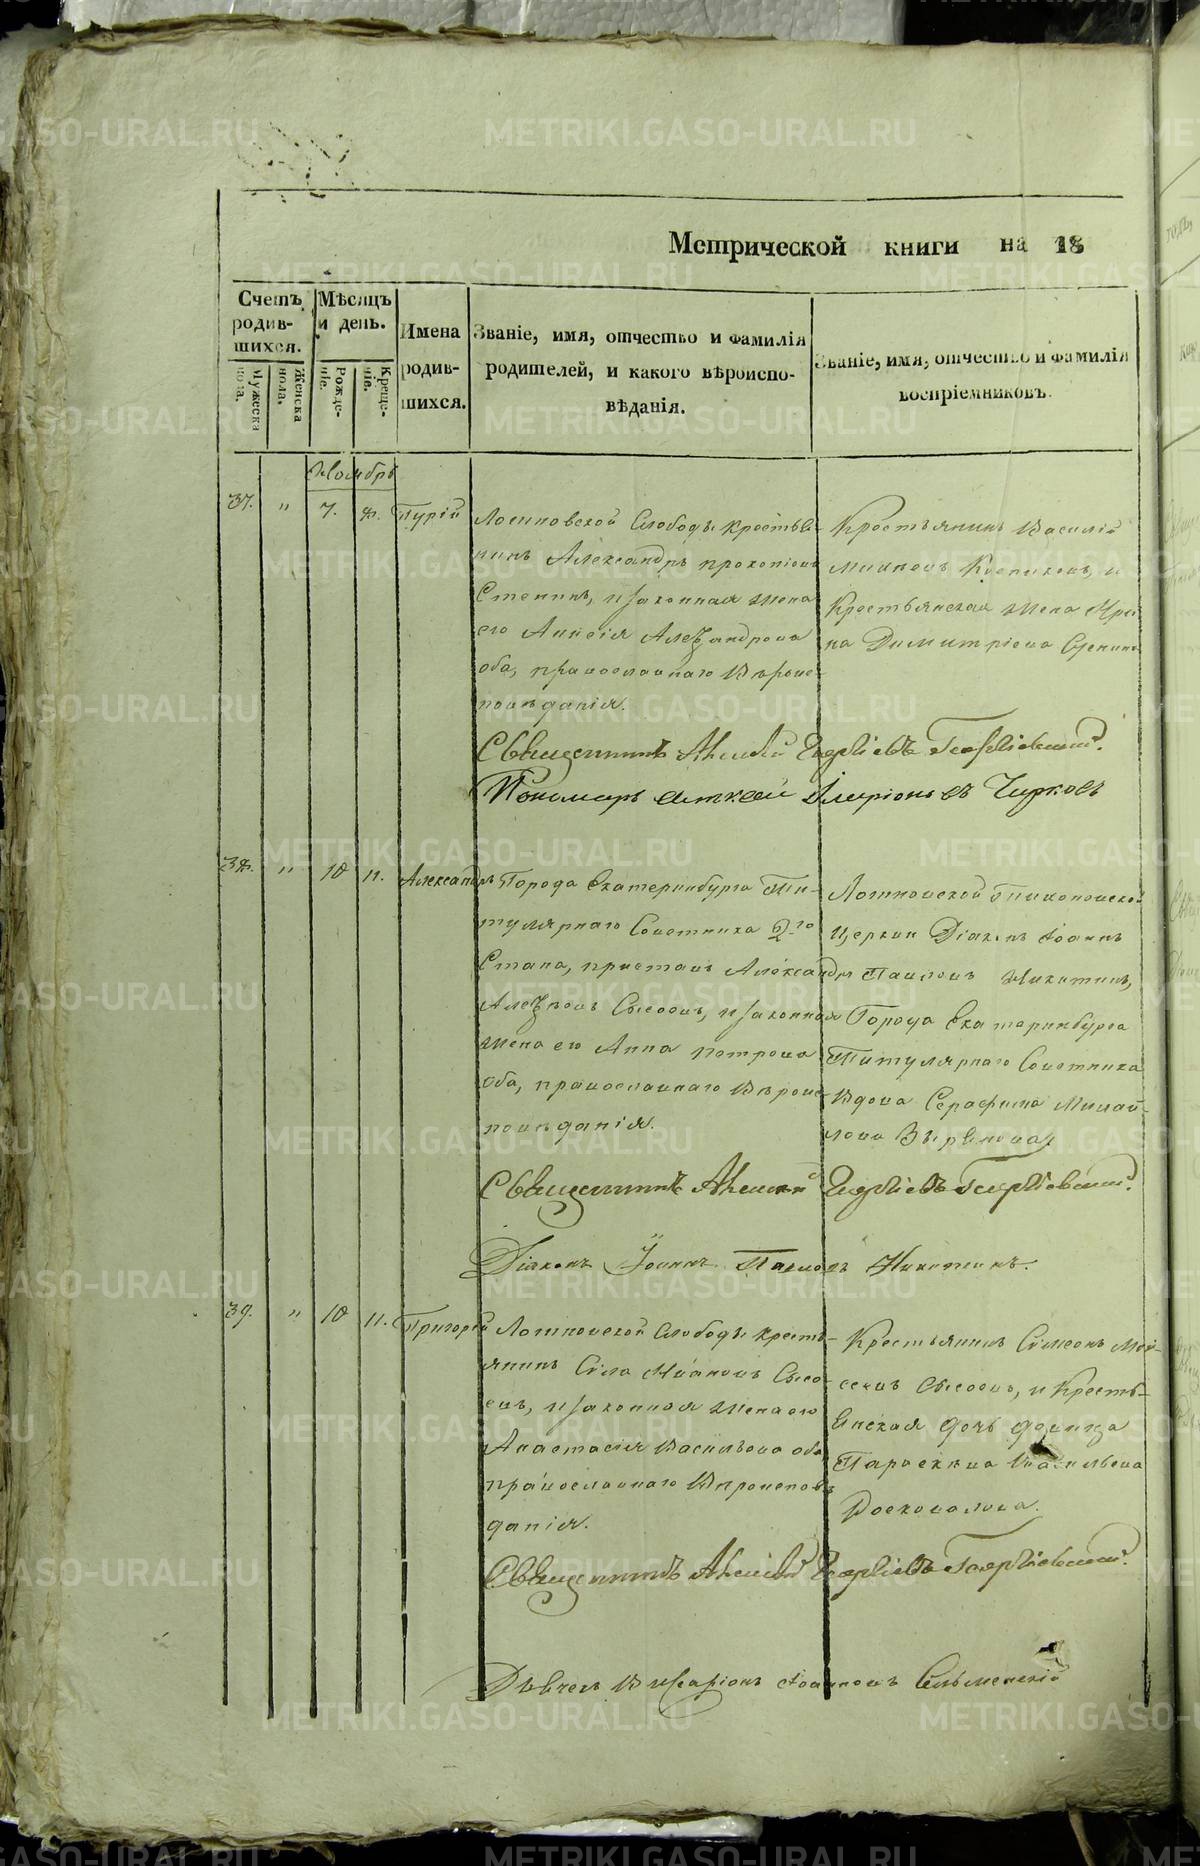 Метрической книги на 18
Счетъ родив-шихся.
Мужеска пола.
Женска пола.
Мѣсяцъ и день.
Рожде-ніе.
Креще-ніе.
Имена родив-шихся.
Званіе, имя, отчество и фамилія
родителей, и какого вѣроиспо-
вѣданія.
Званіе, имя, отчество и фамилія
воспріемниковъ.
Ноябрь
37. " 7. 8. Гурій
слободы крестья-
нинъ Александръ Прокопіевъ
Стенинъ, и законная жена
его Александрова
оба, православнаго вѣроис-
повѣданія.
Крестьянинъ Василій
и
Крестьянская жена Ири-
на Димитріева
Священникъ Алексій Георгіевъ Георгіевскій.
Пономарь Иларіоновъ Чирковъ
38. " 10 11. Александръ
Города Екатеринбурга Ти-
тулярнаго Совѣтника 2го
Стана, приставъ Александръ
Сысоевъ, и законная
жена его Анна Петрова
оба, православнаго вѣроис-
повѣданія.
церкви Діаконъ Іоаннъ
Павловъ Никитинъ,
Города Екатеринбурга
Титулярнаго Совѣтника
вдова Серафима Михай-
лова
Священникъ Алексій Георгіевъ Георгіевскій.
Діаконъ Іоаннъ Павловъ Никитинъ.
39. " 10 11. Григорій
слободы крестья-
янинъ Сила Ивановъ Сысо-
евъ, и законная жена его
Анастасія Васильева оба
православнаго вѣроисповѣ-
данія.
Крестьянинъ Симеонъ Мои-
сеевъ Сысоевъ, и Кресть-
янская дочь девица
Параскева Васильева
Священникъ Алексій Георгіевъ Георгіевскій.
Дьячекъ Виссаріонъ Іоанновъ
METRIKI.GASO-URAL.RU